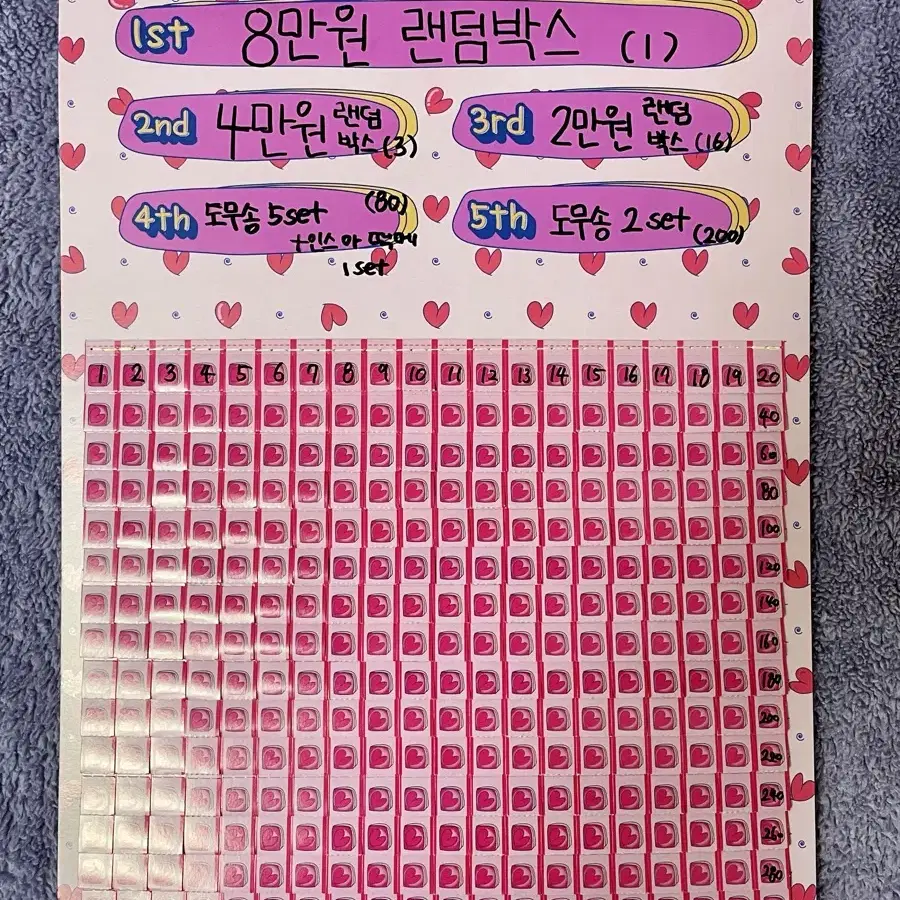 1st 8만원 랜덤박스 (1)
2nd 4만원 랜덤
박스 (3)
3rd 2만원 랜덤
박스 (16)
4th 도무송 5set (80)
+인스 아 떡메
1set
5th 도무송 2set (200)
1 2 3 4 5 6 7 8 9 10 11 12 13 14 15 16 17 18 19 20
40
60
80
100
120
140
160
180
200
240
260
280